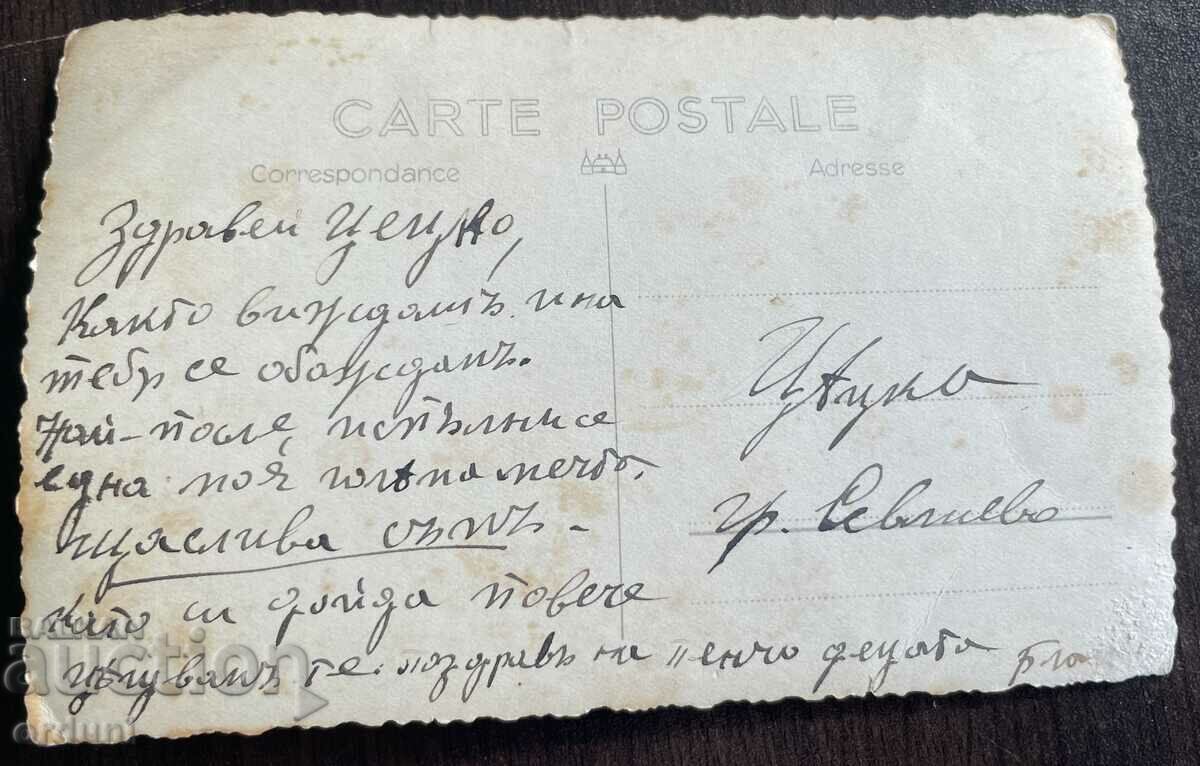 CARTE POSTALE
Correspondance
Adresse
Здравей Цецко,
Както виждамъ и на
тебе се обаждамъ.
Най-после, испълни се
една моя голѣма мечта.
Щаслива съмъ.
Като си дойда повече
цѣлувамъ те. поздравъ на Пенчо децата
гр. Севлиево
auction